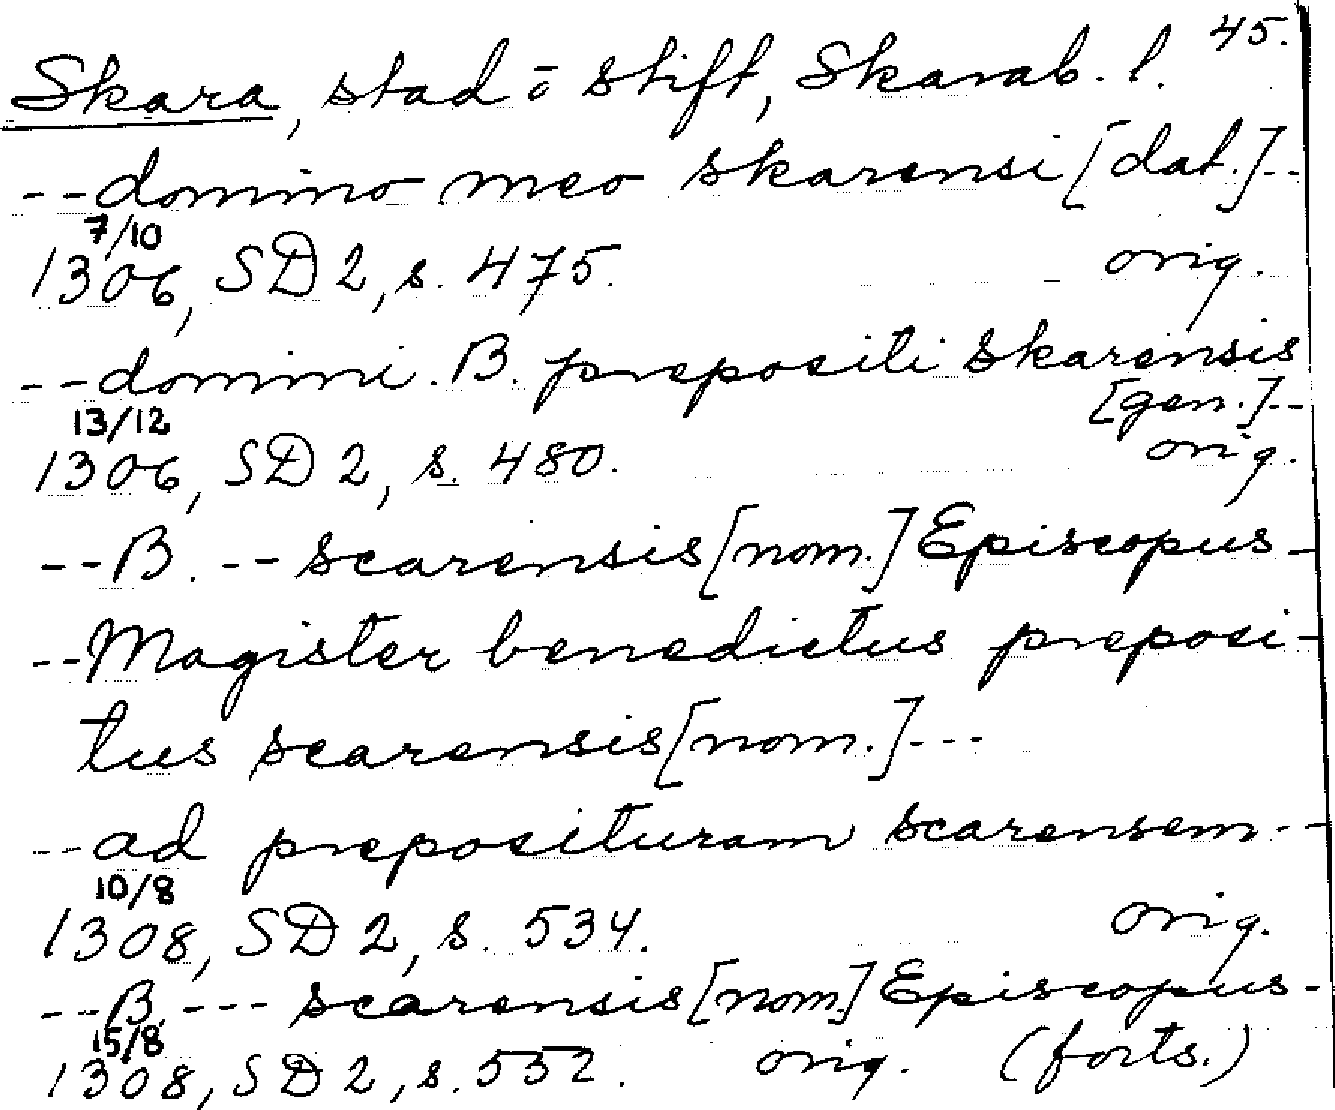 45.
Skara, stad ō stift, Skarab. l.
--domino meo skarensi [dat.]--
7/10
1306, SD 2, s. 475. orig.
--domini. B. prepositi skarensis
[gen.]--
13/12
1306, SD 2, s. 480. orig.
--B. -- scarensis [nom.] Episcopus-
--Magister benedictus preposi-
tus scarensis [nom.]---
--ad preposituram scarensem--
10/8
1308, SD 2, s. 534. orig.
--B. --- scarensis [nom.] Episcopus-
15/8
1308, SD 2, s. 552. orig. (forts.)